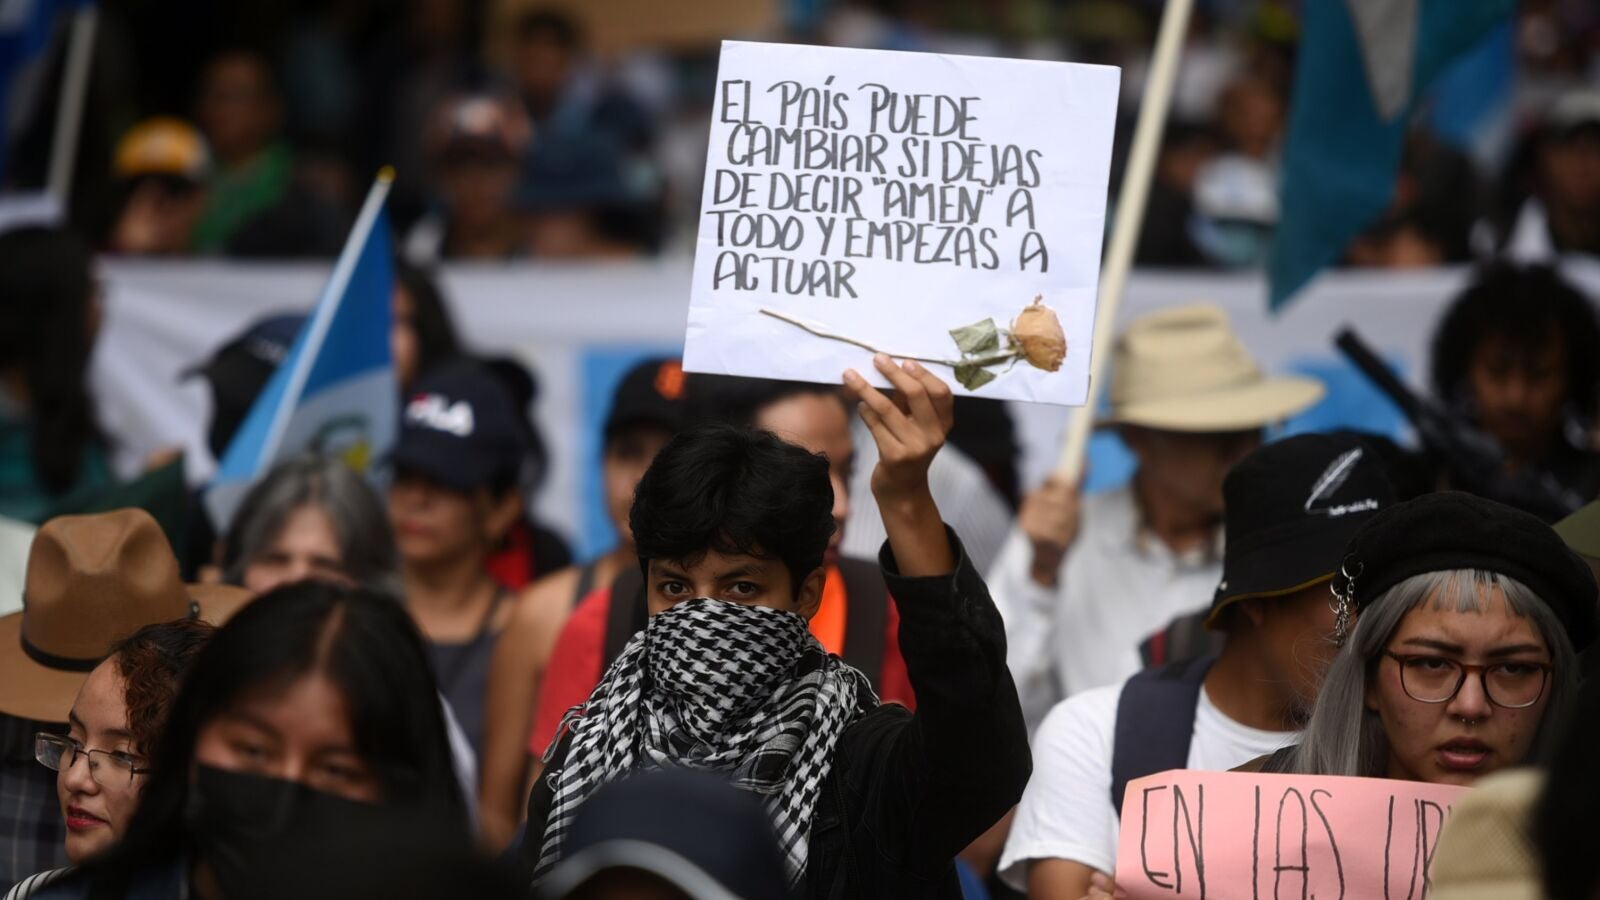 EL PAÍS PUEDE
CAMBIAR SI DEJAS
DE DECIR "AMÉN" A
TODO Y EMPEZAS A
ACTUAR
FILA
EN LAS